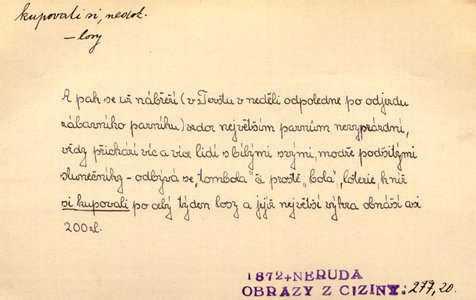 kupovali si, nedok.
— losy
A pak se už nábřeží (v Terstu v neděli odpoledne po odjezdu
zábavního parníku) vzdor největším parnům nevyprázdní,
vždy přichází víc a více lidí s bílými svými, modře podšitými
slunečníky - odbývá se „tombola" či prostě „bola", loterie, k níž
si kupovali po celý týden losy a jejíž největší výhra obnáší asi
200 zl.
1872+NERUDA
OBRAZY Z CIZINY: 277, 20.